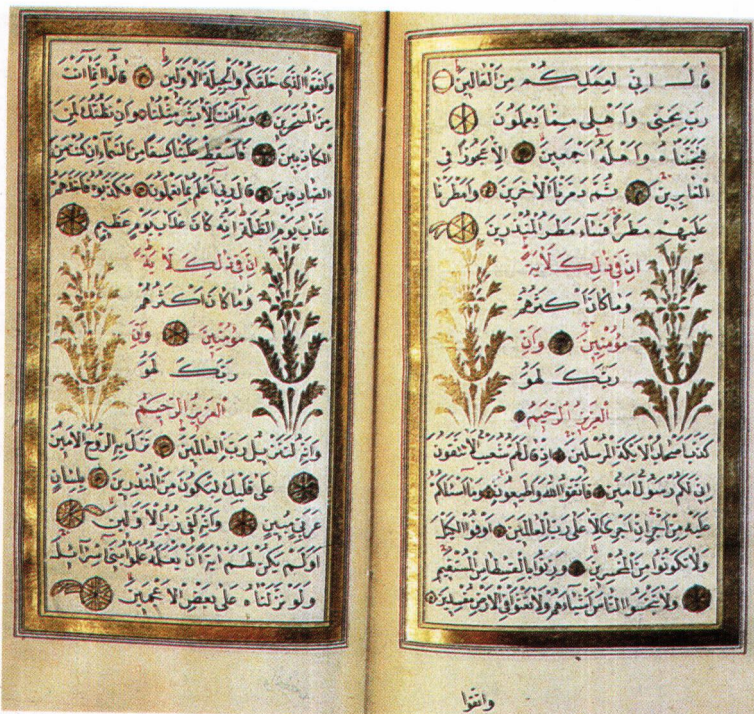 قَالَ اِنّي لِعَمَلِكُمْ مِنَ الْقَالِينَ
رَبِّ نَجِّنِي وَاَهْلِي مِمَّا يَعْمَلُونَ
فَنَجَّيْنَاهُ وَاَهْلَهُ اَجْمَعِينَ اِلَّا عَجُوزًا فِي
الْغَابِرِينَ ثُمَّ دَمَّرْنَا الْاٰخَرِينَ وَاَمْطَرْنَا
عَلَيْهِمْ مَطَرًا فَسَاءَ مَطَرُ الْمُنْذَرِينَ
اِنَّ فِي ذٰلِكَ لَاٰيَةً
وَمَا كَانَ اَكْثَرُهُمْ
مُؤْمِنِينَ وَاِنَّ
رَبَّكَ لَهُوَ
الْعَزِيزُ الرَّحِيمُ
كَذَّبَ اَصْحَابُ الْاَيْكَةِ الْمُرْسَلِينَ اِذْ قَالَ لَهُمْ شُعَيْبٌ اَلَا تَتَّقُونَ
اِنّي لَكُمْ رَسُولٌ اَمِينٌ فَاتَّقُوا اللهَ وَاَطِيعُونِ وَمَا اَسْئَلُكُمْ
عَلَيْهِ مِنْ اَجْرٍ اِنْ اَجْرِيَ اِلَّا عَلٰى رَبِّ الْعَالَمِينَ اَوْفُوا الْكَيْلَ
وَلَا تَكُونُوا مِنَ الْمُخْسِرِينَ وَزِنُوا بِالْقِسْطَاسِ الْمُسْتَقِيمِ
وَلَا تَبْخَسُوا النَّاسَ اَشْيَاءَهُمْ وَلَا تَعْثَوْا فِي الْاَرْضِ مُفْسِدِينَ
واتقوا
وَاتَّقُوا الَّذِي خَلَقَكُمْ وَالْجِبِلَّةَ الْاَوَّلِينَ قَالُوا اِنَّمَا اَنْتَ
مِنَ الْمُسَحَّرِينَ وَمَا اَنْتَ اِلَّا بَشَرٌ مِثْلُنَا وَاِنْ نَظُنُّكَ لَمِنَ
الْكَاذِبِينَ فَاَسْقِطْ عَلَيْنَا كِسَفًا مِنَ السَّمَاءِ اِنْ كُنْتَ مِنَ
الصَّادِقِينَ قَالَ رَبّي اَعْلَمُ بِمَا تَعْمَلُونَ فَكَذَّبُوهُ فَاَخَذَهُمْ
عَذَابُ يَوْمِ الظُّلَّةِ اِنَّهُ كَانَ عَذَابَ يَوْمٍ عَظِيمٍ
اِنَّ فِي ذٰلِكَ لَاٰيَةً
وَمَا كَانَ اَكْثَرُهُمْ
مُؤْمِنِينَ وَاِنَّ
رَبَّكَ لَهُوَ
الْعَزِيزُ الرَّحِيمُ
وَاِنَّهُ لَتَنْزِيلُ رَبِّ الْعَالَمِينَ نَزَلَ بِهِ الرُّوحُ الْاَمِينُ
عَلٰى قَلْبِكَ لِتَكُونَ مِنَ الْمُنْذِرِينَ بِلِسَانٍ
عَرَبِيٍّ مُبِينٍ وَاِنَّهُ لَفِي زُبُرِ الْاَوَّلِينَ
اَوَلَمْ يَكُنْ لَهُمْ اٰيَةً اَنْ يَعْلَمَهُ عُلَمٰؤُا بَنِي اِسْرَائِيلَ
وَلَوْ نَزَّلْنَاهُ عَلٰى بَعْضِ الْاَعْجَمِينَ